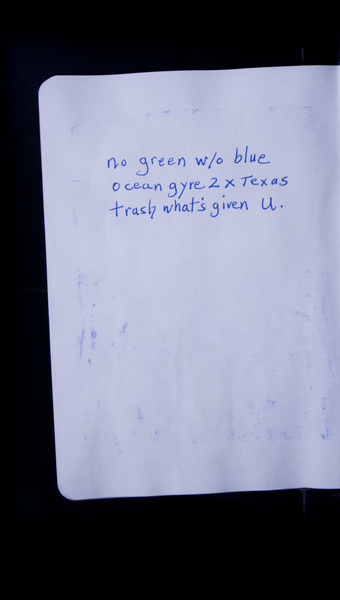 no green w/o blue
ocean gyre 2 x Texas
trash what's given U.